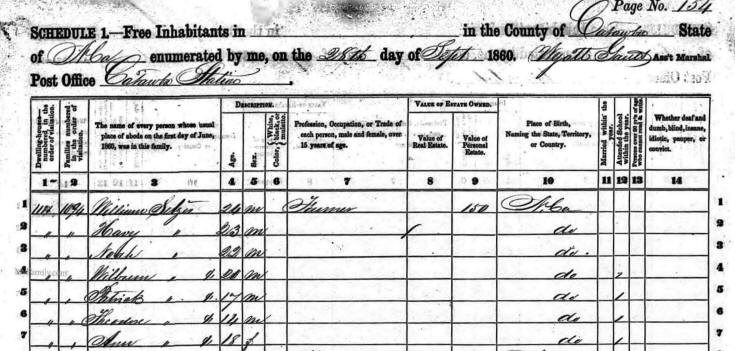 Page No. 154
SCHEDULE 1.—Free Inhabitants in in the County of Catawba State
of N. Ca enumerated by me, on the 28th day of Sept 1860. Wyatt Ass't Marshal
Post Office Catawba Station
Dwelling-houses—numbered in the order of visitation.
Families numbered in the order of visitation.
The name of every person whose usual place of abode on the first day of June, 1860, was in this family.
DESCRIPTION.
Age.
Sex.
Color, White, black, or mulatto.
Profession, Occupation, or Trade of each person, male and female, over 15 years of age.
VALUE OF ESTATE OWNED.
Value of Real Estate.
Value of Personal Estate.
Place of Birth, Naming the State, Territory, or Country.
Married within the year.
Attended School within the year.
Persons over 20 y'rs of age who cannot read & write.
Whether deaf and dumb, blind, insane, idiotic, pauper, or convict.
1 2 3 4 5 6 7 8 9 10 11 12 13 14
1 1094 William 24 m Farmer 150 N. Ca 1
2 " " " 23 m / do 2
3 " " Noah " 22 m do 3
4 " " " 20 m do 4
5 " " Patrick " 17 m do 1 5
6 " " Theodore " 14 m do 1 6
7 " " Ann " 18 f do 1 7